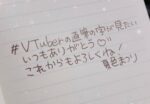 #VTuberの直筆の字が見たい
いつもありがとう♡
これからもよろしくね!
夏色まつり